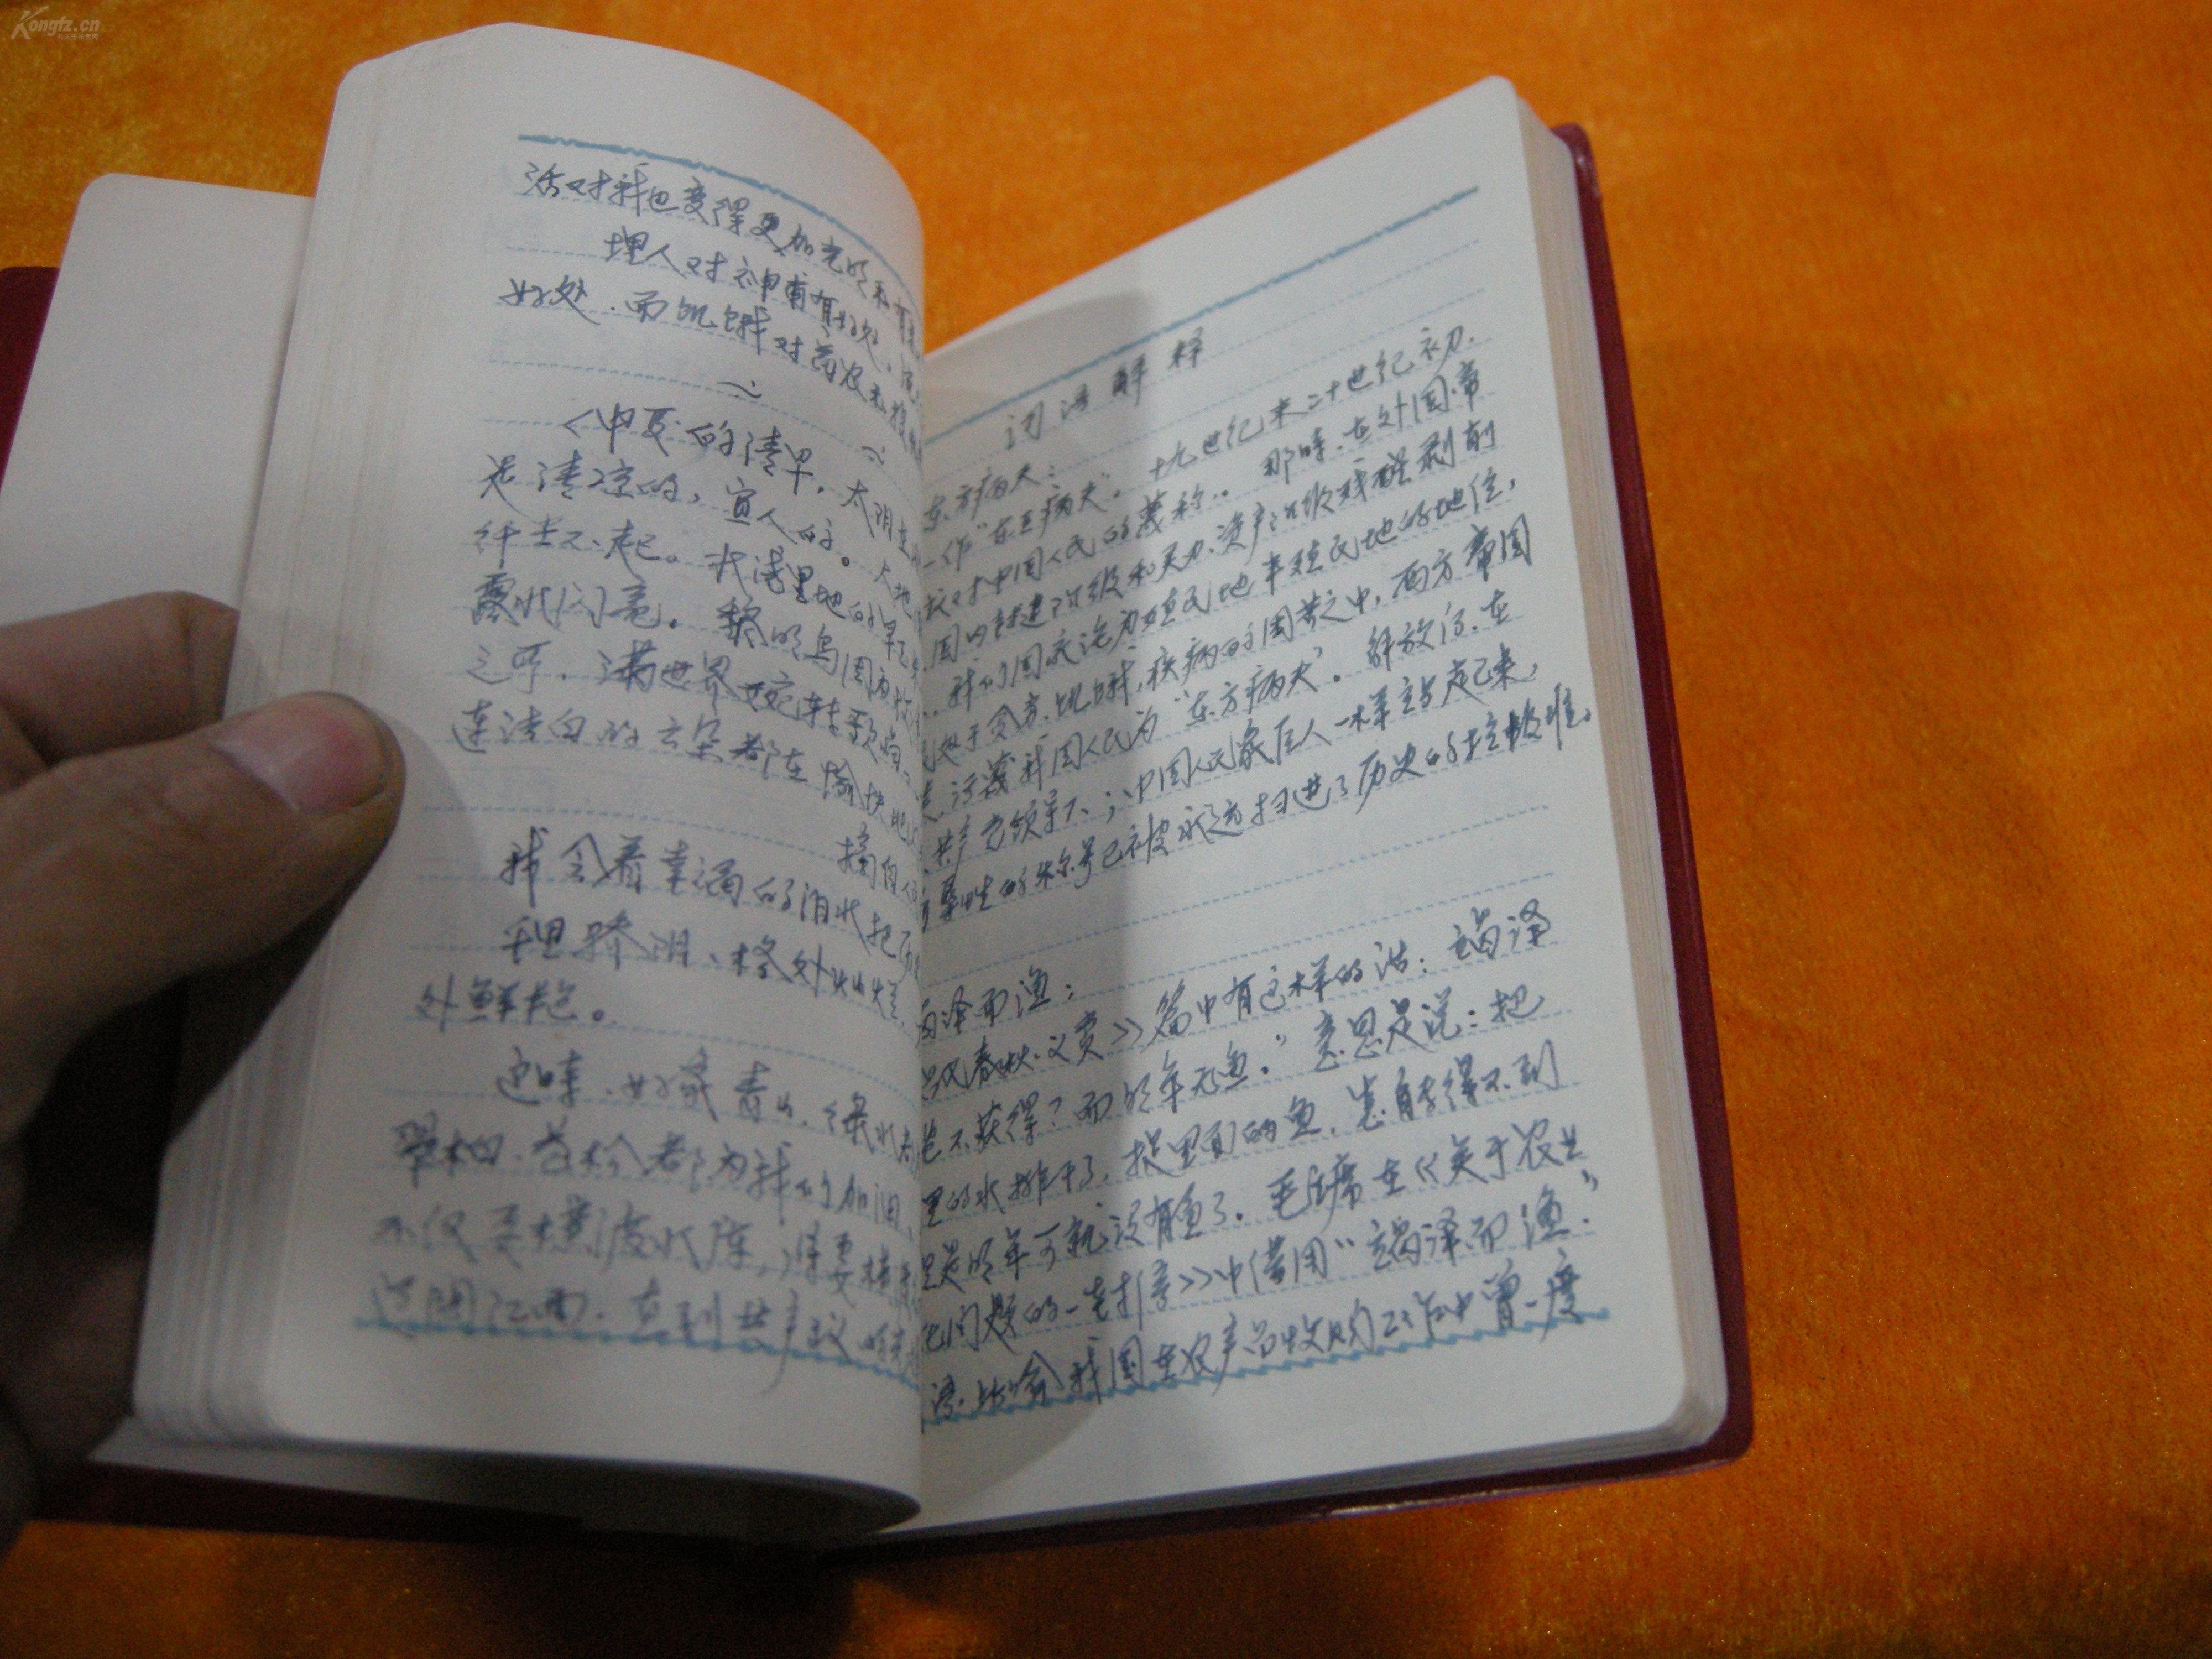 Kongfz.cn
活对我也变得更加光明和有
埋人对神甫有好处,
好处.而饥饿对
《中夏的清早,太阳
是清凉的,宜人的。大地
纤尘不起。水湾里地的草
露水闪亮。黎明鸟因为
之所.满世界婉转歌唱。
连洁白的云朵都在愉快地
摘自
我含着幸福的泪水把
千里骄阳、格处灿烂
外鲜艳。
这时.好象青山.绿水
翠柏.苍松都为我们加油,
不仅要横渡水库,还要横
过闽江
词语解释
东方病夫:
一作“东亚病夫”.十九世纪末二十世纪初.
对中国人民的蔑称..那时.在外国帝
.国内封建阶级和买办.资产阶级残酷剥削
..我们国家沦为殖民地半殖民地的地位,
处于贫穷.饥饿,疾病的困苦之中,西方帝国
.污蔑我国人民为“东方病夫”.解放后.在
共产党领导下.;中国人民象巨人一样站起来,
的称号已被永远扫进了历史的垃圾堆。
泽而渔:
氏春秋.义赏》篇中有这样的话:竭泽
岂不获得?而明年无鱼.”意思是说:把
里的水排干了.捉里面的鱼.岂能得不到
是明年可就没有鱼了.毛主席在《关于农业
化问题的一重》中借用“竭泽而渔”
语.比喻我国在农产品收购工作中曾一度